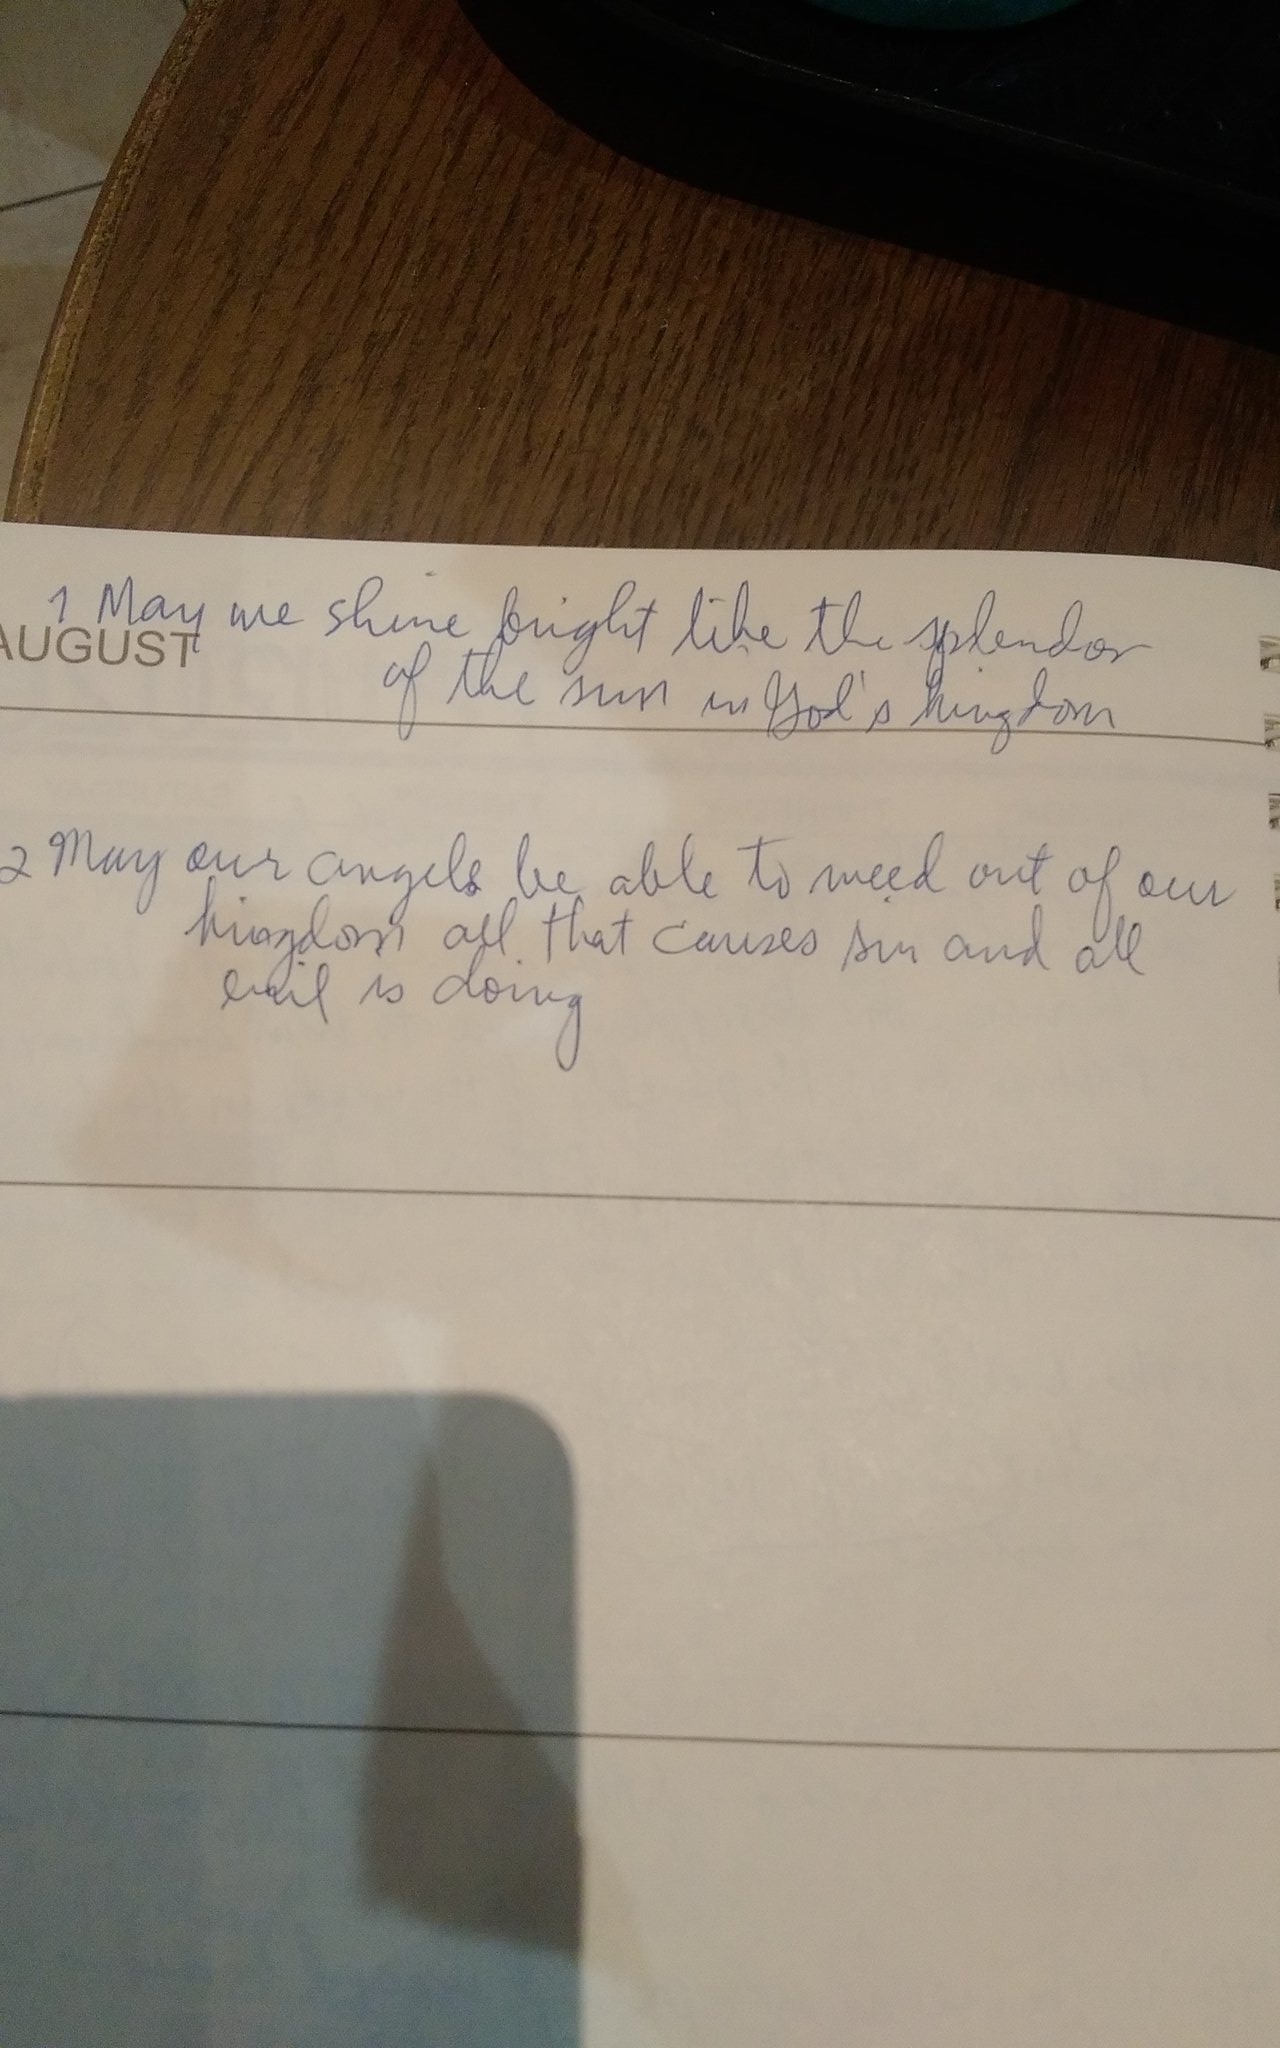 1 May we shine bright like the splendor
AUGUST
of the sun in God's kingdom
2 May our angels be able to weed out of our
kingdom all that causes sin and all
evil is doing